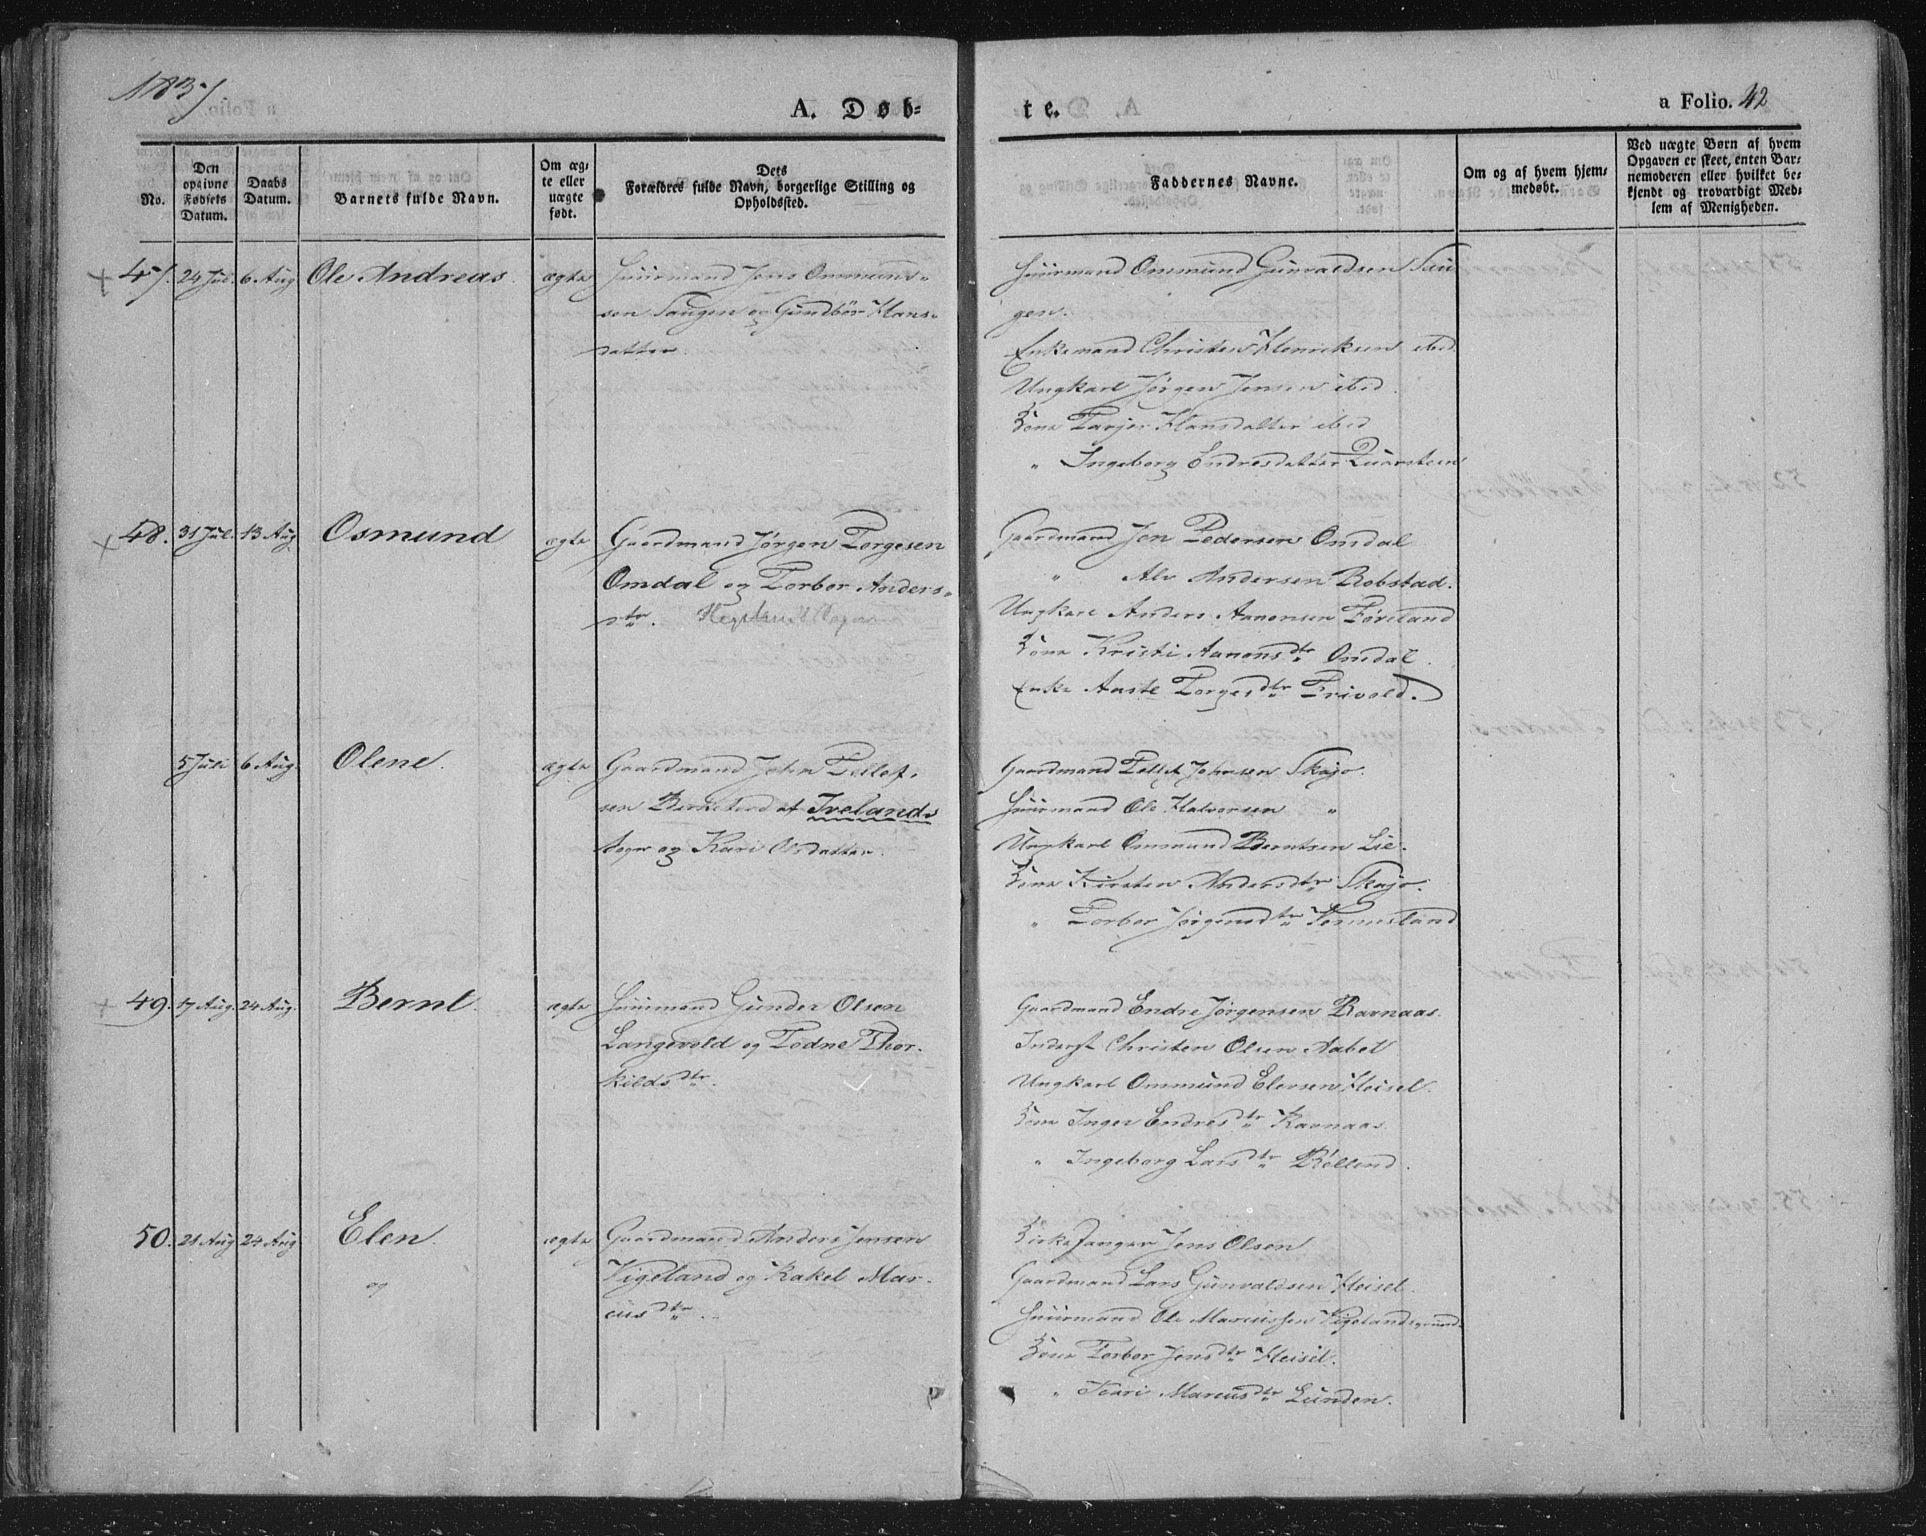 1837.
A. Døb-
te.
a Folio. 42
No.
Den opgivne Fødsels Datum.
Daabs Datum.
Barnets fulde Navn.
Om ægte eller uægte født.
Dets Forældres fulde Navn, borgerlige Stilling og Opholdssted.
Faddernes Navne.
Om og af hvem hjemmedøbt.
Ved uægte Børn af hvem Opgaven er skeet, enten Barnemoderen eller hvilket bekjendt og troværdigt Medlem af Menigheden.
47. 24 Jul. 6 Aug Ole Andreas. ægte Huusmand Jens Ommunds-
sen Taugen og Gundbør Hans-
datter.
Huusmand Ommund Gunvaldsen Tau
gen.
Enkemand Christen Henriksen ibid.
Ungkarl Jørgen Jensen ibid.
Kone Tarjer Hansdatter ibid
" Ingeborg Endresdatter Quarsteen
48. 31 Jul. 13 Aug. Osmund ægte Gaardmand Jørgen Torgesen
Omdal og Torbor Anders-
dtr.
Gaardmand Jon Pedersen Omdal
" Alv Andersen Robstad.
Ungkarl Anders Aanonsen Føreland
Kone Kristi Aanonsdtr Omdal.
Enke Aaste Torgesdtr Frivold.
5 Juli 6 Aug. Olene. ægte Gaardmand John Tellef-
sen Birketved af Ivelands
Sogn og Kari Olsdatter.
Gaardmand Tellef Johnsen Skajo.
Huusmand Ole Halvorsen "
Ungkarl Ommund Berntsen Lie.
Kone Kirsten Andersdtr Skajo.
" Torbor Jørgensdtr Tønnesland
49. 17 Aug. 24 Aug. Bernt. ægte Huusmand Gunder Olsen
Langevold og Todne Thor-
kildsdtr.
Gaardmand Endre Jørgensen Ravnaas.
Inderst Christen Olsen Aabel
Ungkarl Ommund Elevsen Heisel.
Kone Inger Endresdtr Ravnaas.
" Ingeborg Larsdtr Røllend.
50. 21 Aug 24 Aug Elen. ægte Gaardmand Anders Jensen
Vigeland og Rakel Mar-
cusdtr.
og
Kirkesanger Jens Olsen
Gaardmand Lars Gunvaldsen Heisel.
Huusmand Ole Marcussen Vigelandsgrund.
Kone Torbor Jensdtr Heisel.
" Kari Marcusdtr Lunden.